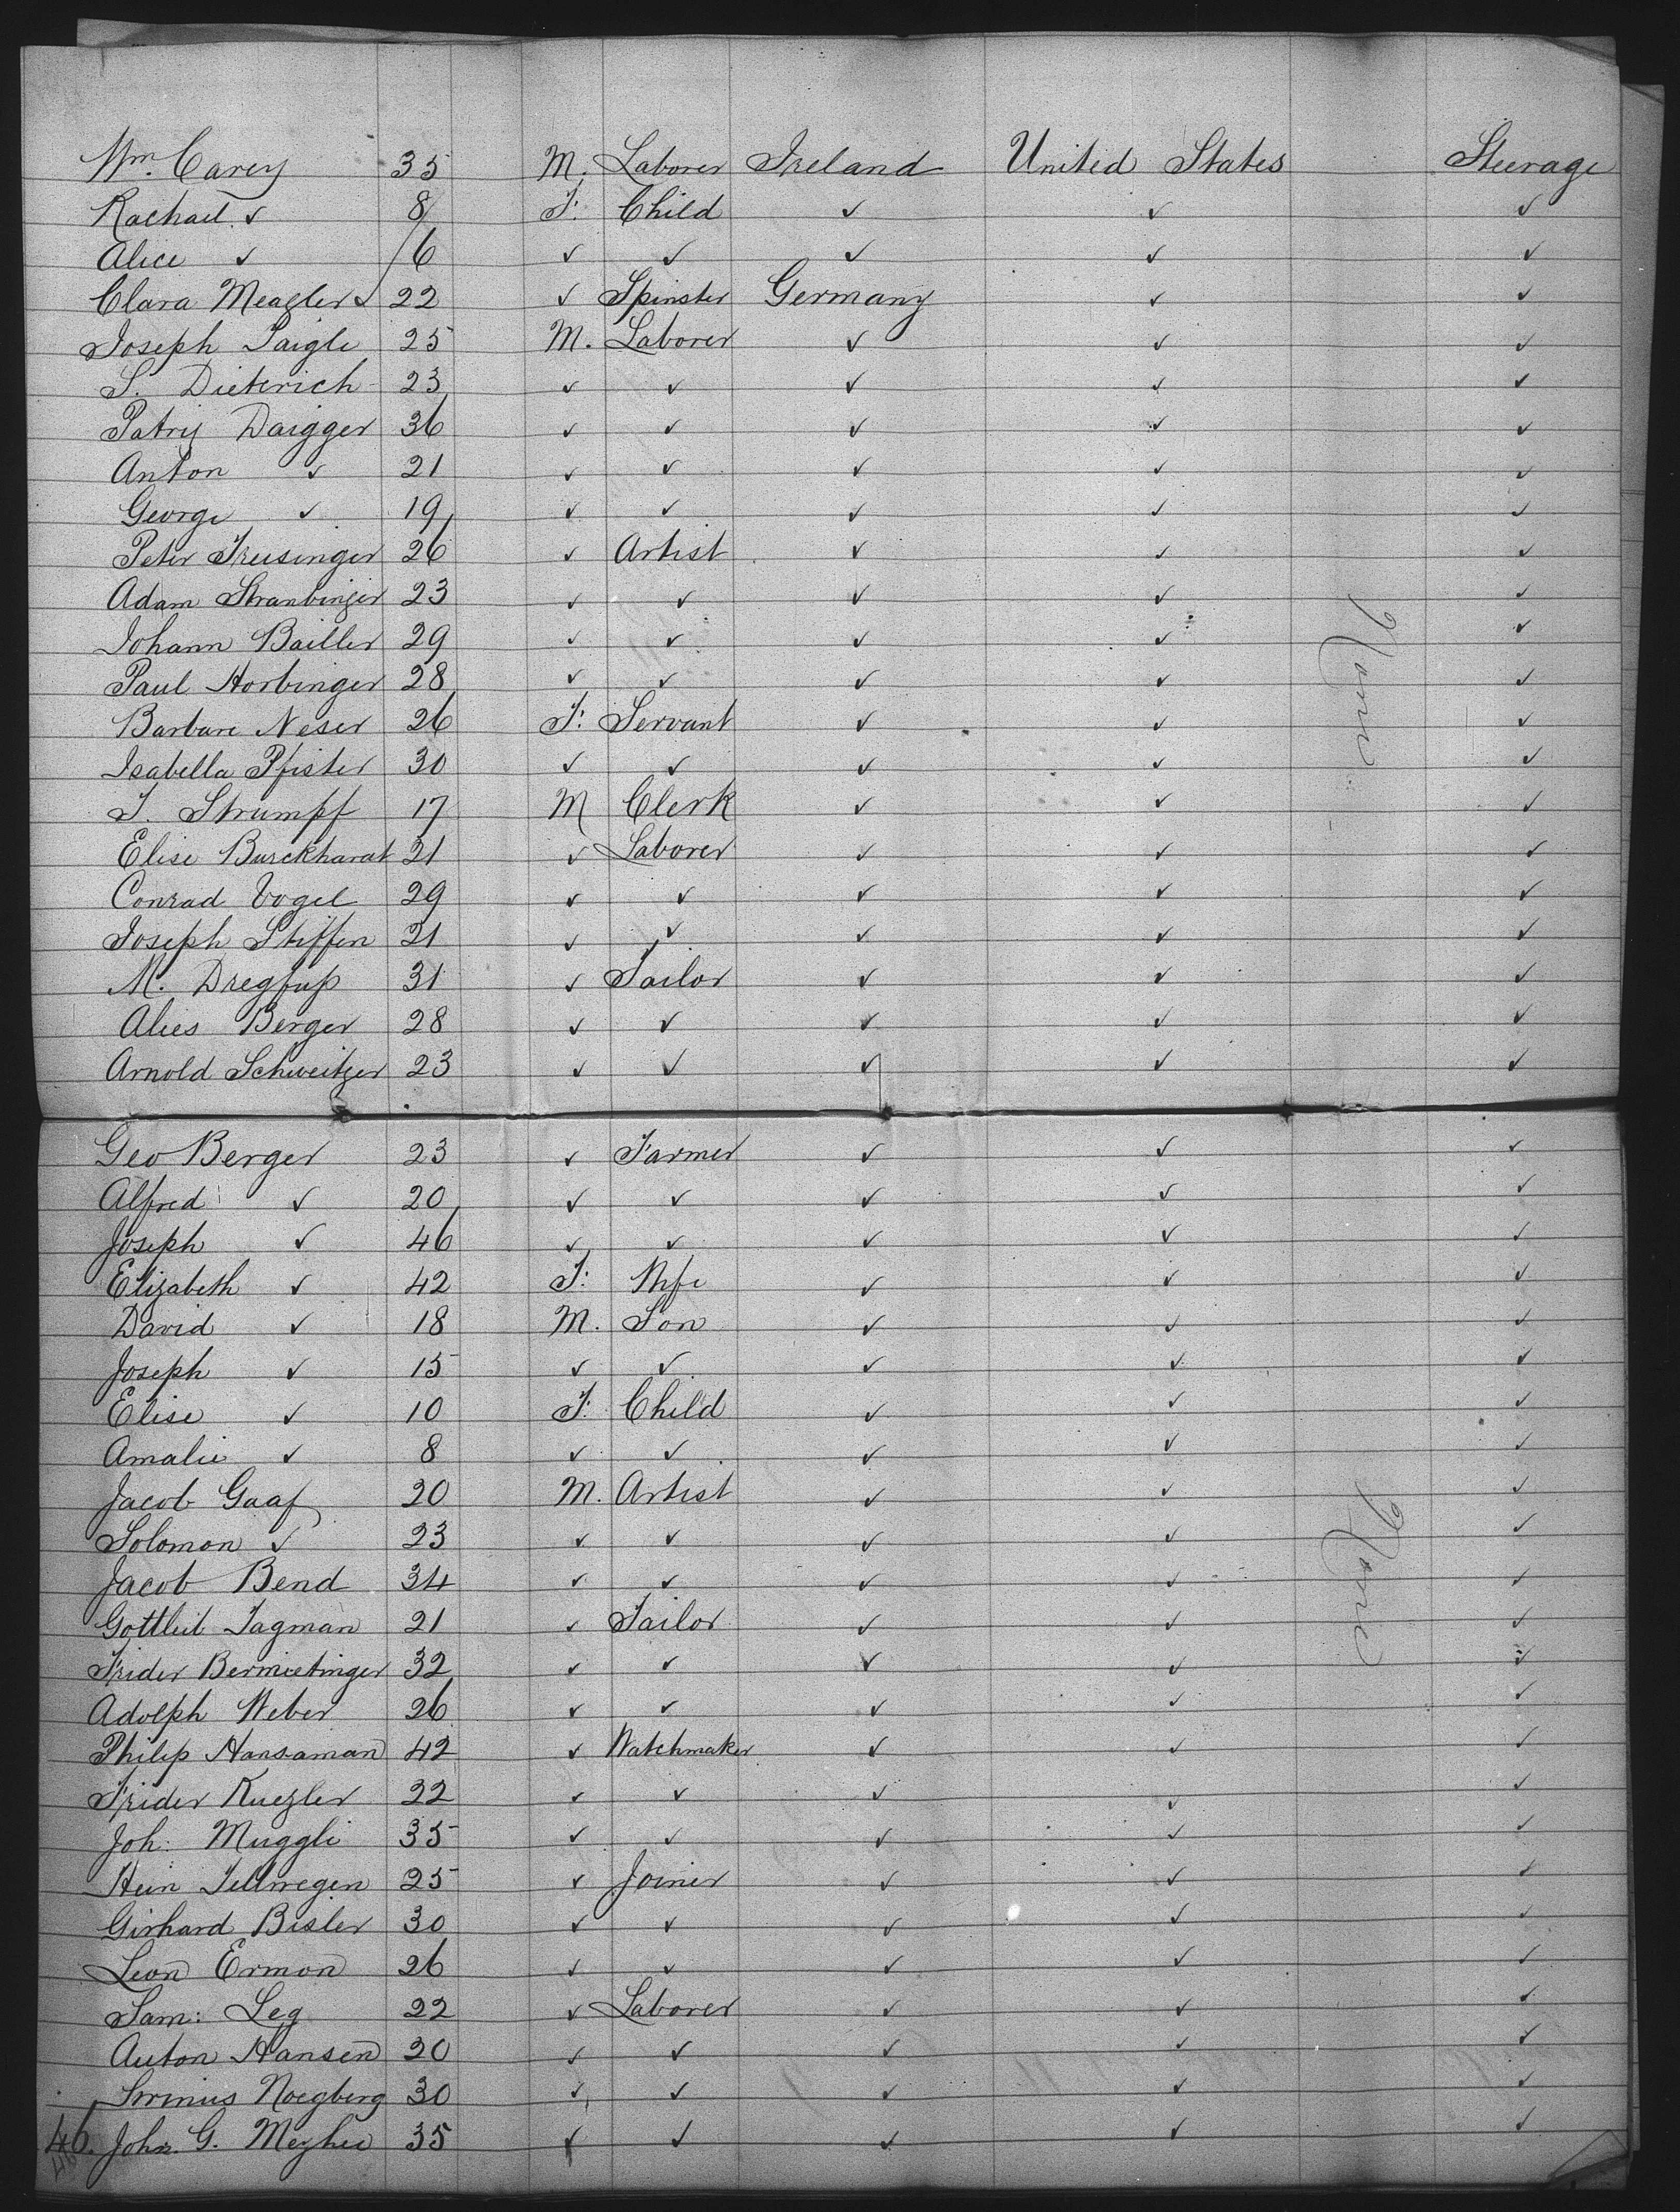 Wm. Carey 35 M. Laborer Ireland United States Steerage
Rachael ✓ 8 F. Child ✓ ✓ ✓
Alice ✓ 6 ✓ ✓ ✓ ✓ ✓
Clara Meagler 22 ✓ Spinster Germany ✓ ✓
Joseph Paigle 25 M. Laborer ✓ ✓ ✓
S. Dieterich 23 ✓ ✓ ✓ ✓ ✓
Patrij Daigger 36 ✓ ✓ ✓ ✓ ✓
Anton ✓ 21 ✓ ✓ ✓ ✓ ✓
George ✓ 19 ✓ ✓ ✓ ✓ ✓
Peter Freisinger 26 ✓ Artist ✓ ✓ ✓
Adam Stranbinger 23 ✓ ✓ ✓ ✓ ✓
Johann Bailler 29 ✓ ✓ ✓ ✓ ✓
Paul Horbinger 28 ✓ ✓ ✓ ✓ ✓
Barbare Neser 26 F. Servant ✓ ✓ ✓
None
Isabella Pfister 30 ✓ ✓ ✓ ✓ ✓
J. Strumpf 17 M Clerk ✓ ✓ ✓
Elise Burckharat 21 ✓ Laborer ✓ ✓ ✓
Conrad Vogel 29 ✓ ✓ ✓ ✓ ✓
Joseph Stiffen 21 ✓ ✓ ✓ ✓ ✓
M. Dregfus 31 ✓ Tailor ✓ ✓ ✓
Alies Berger 28 ✓ ✓ ✓ ✓ ✓
Arnold Schweitzer 23 ✓ ✓ ✓ ✓ ✓
Geo Berger 23 ✓ Farmer ✓ ✓ ✓
Alfred ✓ 20 ✓ ✓ ✓ ✓ ✓
Joseph ✓ 46 ✓ ✓ ✓ ✓ ✓
Elizabeth ✓ 42 F. Wife ✓ ✓ ✓
David ✓ 18 M. Son ✓ ✓ ✓
Joseph ✓ 15 ✓ ✓ ✓ ✓ ✓
Elise ✓ 10 F. Child ✓ ✓ ✓
Amalie ✓ 8 ✓ ✓ ✓ ✓ ✓
Jacob Gaaf 20 M. Artist ✓ ✓ ✓
Solomon ✓ 23 ✓ ✓ ✓ ✓ ✓
Jacob Bend 34 ✓ ✓ ✓ ✓ ✓
None
Gottleib Tagman 21 ✓ Tailor ✓ ✓ ✓
Frider Bermietinger 32 ✓ ✓ ✓ ✓ ✓
Adolph Weber 26 ✓ ✓ ✓ ✓ ✓
Philip Hansaman 42 ✓ Watchmaker ✓ ✓ ✓
Frider Kuegler 22 ✓ ✓ ✓ ✓ ✓
Joh: Muggli 35 ✓ ✓ ✓ ✓ ✓
Hein Tellwegen 25 ✓ Joiner ✓ ✓ ✓
Girhard Bisler 30 ✓ ✓ ✓ ✓ ✓
Leon Ermon 26 ✓ ✓ ✓ ✓ ✓
Sam: Leg 22 ✓ Laborer ✓ ✓ ✓
Auton Hansen 20 ✓ ✓ ✓ ✓ ✓
Noegberg 30 ✓ ✓ ✓ ✓ ✓
46. John G. Meyhie 35 ✓ ✓ ✓ ✓ ✓